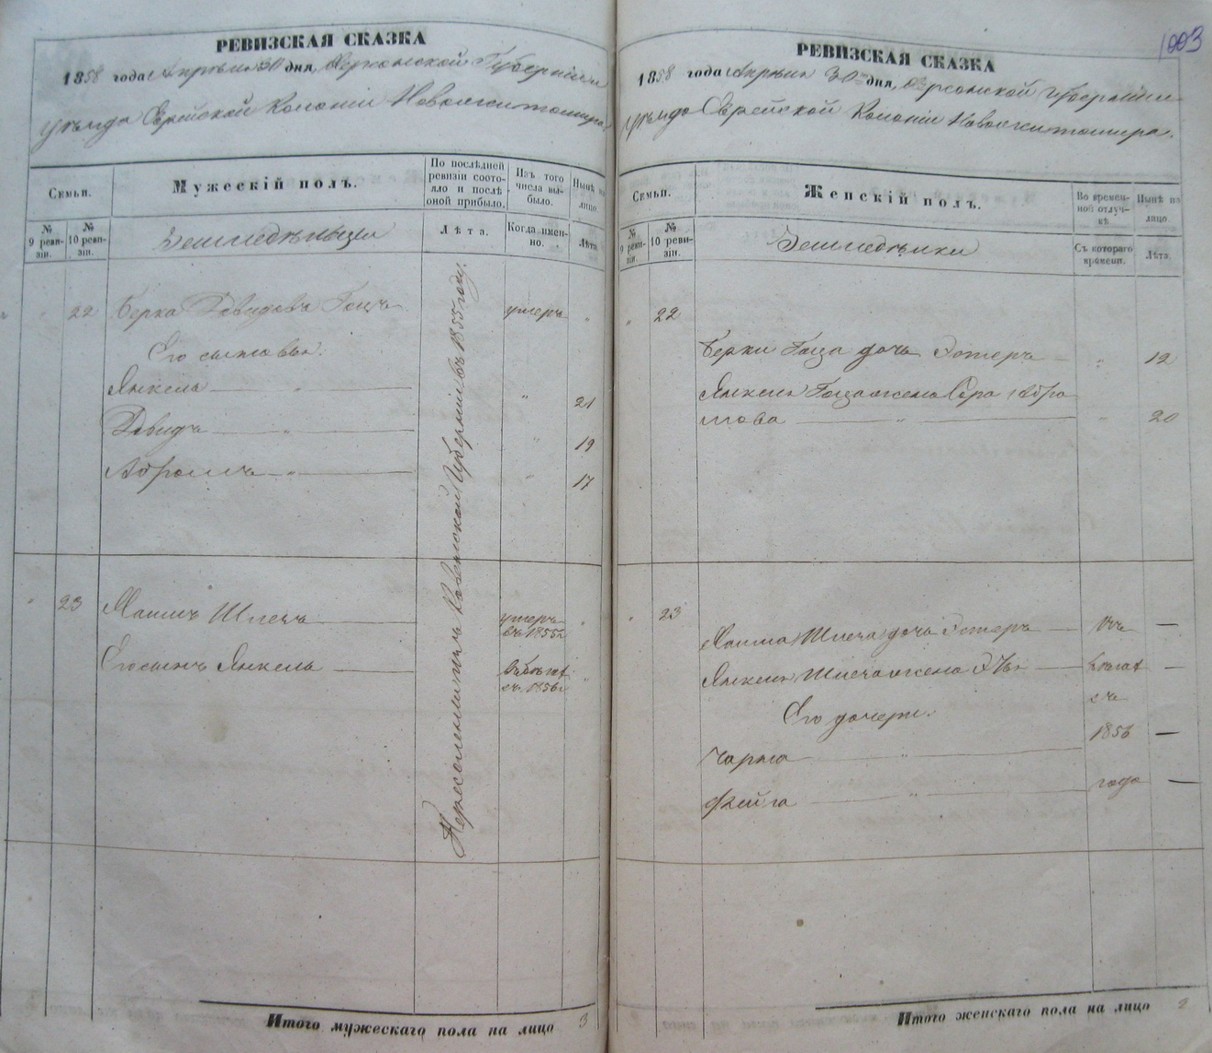 РЕВИЗСКАЯ СКАЗКА
1858 года Апреля 30 дня, Херсонской Губерніи и
уѣзда Еврейской Колоніи Новожитомира
Семьи.
Мужескій полъ.
По послѣдней ревизіи состояло и послѣ оной прибыло.
Изъ того числа выбыло.
Нынѣ на лицо.
№ 9 ревизіи.
№ 10 ревизіи.
Земледѣльцы
Лѣта.
Когда именно.
Лѣта.
22 Берка Довидовъ Гоцъ умеръ "
Его сыновья:
Янкель " " 21
Довидъ " " 19
Абрамъ " " 17
Переселенный изъ Ковенской Губерніи въ 1855 году.
23 Хаимъ Шлеча умеръ въ 1855 г.
Его сынъ Янкель въ бѣгахъ съ 1856 г.
Итого мужескаго пола на лицо 3
1003
РЕВИЗСКАЯ СКАЗКА
1858 года Апреля 30 дня, Херсонской Губерніи и
уѣзда Еврейской Колоніи Новожитомира.
Семьи.
Женскій полъ.
Во временной отлучкѣ.
Нынѣ на лицо.
№ 9 ревизіи.
№ 10 ревизіи.
Земледѣлки
Съ котораго времени.
Лѣта.
" 22
Берки Гоца дочь Эстеръ " 12
Янкеля Гоца жена Сора Абра
мова " " 20
" 23
Хаима Шлеча дочь Эстеръ въ —
Янкеля Шлеча жена бѣгахъ —
Его дочери: съ
Чарна " 1856 —
Фейга " года —
Итого женскаго пола на лицо 2